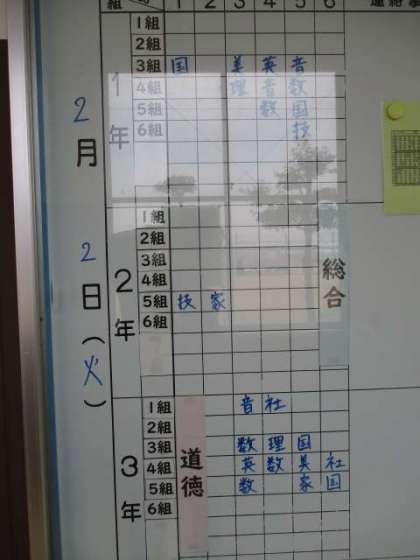 組 1 2 3 4 5 6
2月2日(火)
1年
1組
2組
3組 国 美 英 音
4組 理 音 数
5組 数 国
6組 技
2年
総合
1組
2組
3組
4組
5組 技 家
6組
3年
道徳
1組 音 社
2組
3組 数 理 国
4組 英 数 美 社
5組 数 家 国
6組